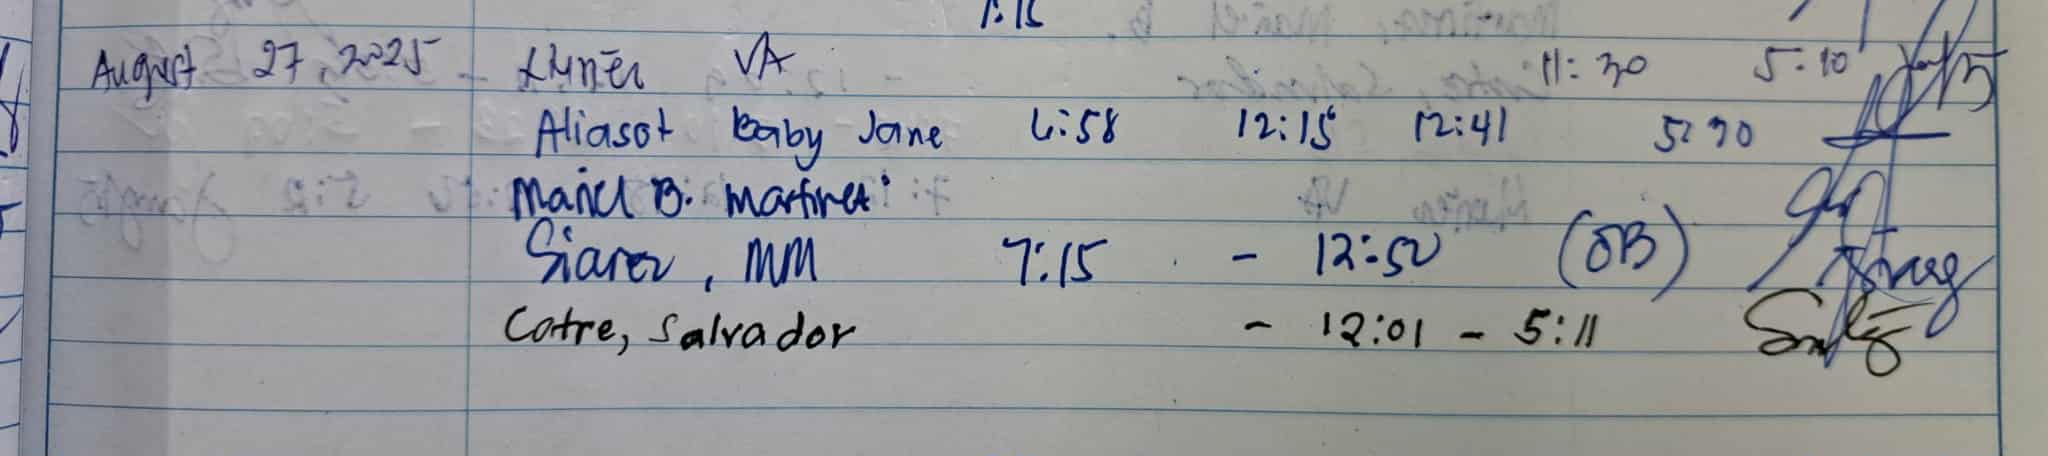 1:15
August 27, 2025 VA 11:30 5:10
Aliasot Baby Jane 6:58 12:15 12:41 5:
B. Martinez
Siarez, MM 7:15 - 12:50 (OB)
Cotre, Salvador - 12:01 - 5:11